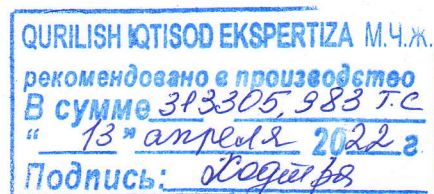 QURILISH IQTISOD EKSPERTIZA М.Ч.Ж.
рекомендовано в производство
В сумме 313305,983 т.с
"13" апреля 2022 г
Подпись: